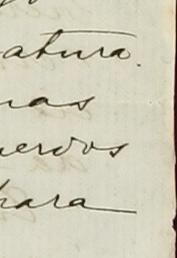 atura.
nas
uerdos
para